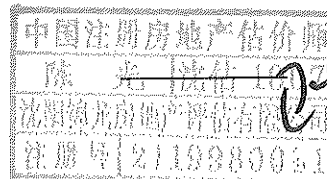 中国注册房地产估价师
陈 光 沈估 1
沈阳 光房地产评估有限 司
注册号 2119980051